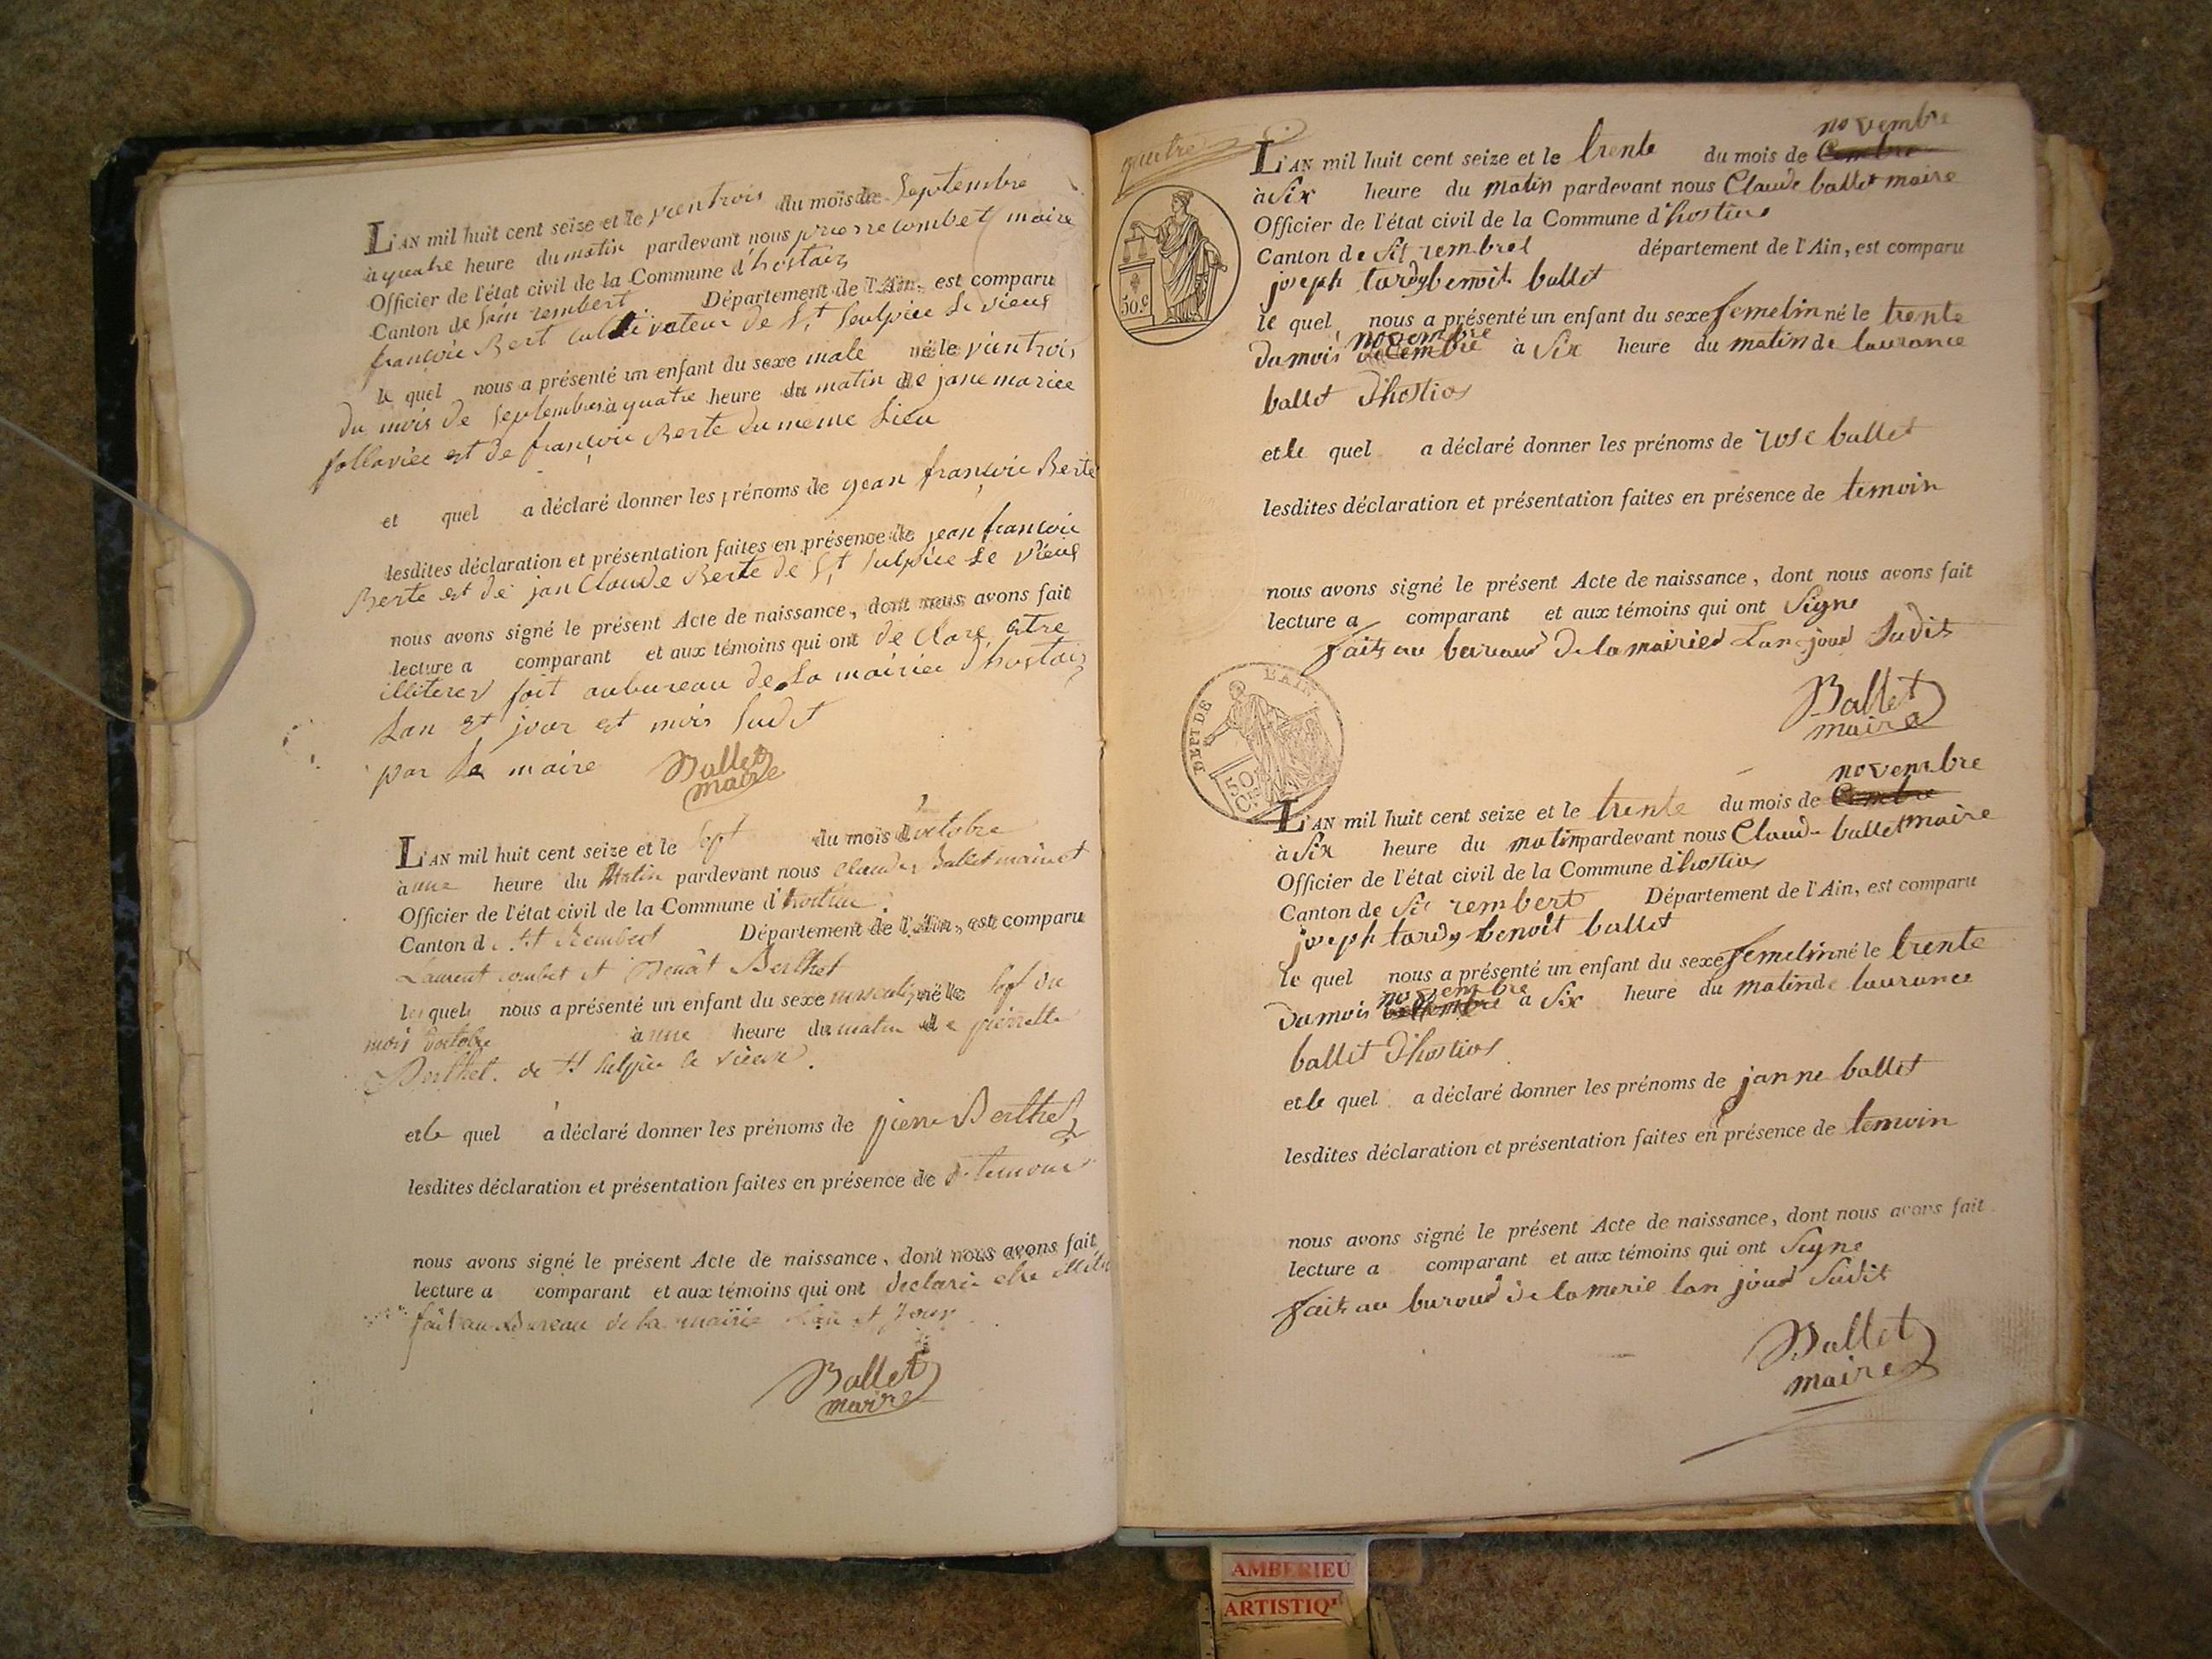 L'AN mil huit cent seize et le vientrois du mois de Septembre
à quatre heure du matin pardevant nous pierre combet maire
Officier de l'état civil de la Commune d'hostiaz
Canton de Sain rembert Département de l'Ain, est comparu
françoie Bert cultivateur de St Seulpiee le vieux
le quel nous a présenté un enfant du sexe male né le vientrois
du mois de Septembre à quatre heure du matin de jane mariee
follaviee et de françoie Berte du meme lieu
et quel a déclaré donner les prénoms de gean françoie Berte
lesdites déclaration et présentation faites en présence de jean françoie
Berte et de jan Claude Berte de St Sulpiee le vieux
nous avons signé le présent Acte de naissance, dont nous avons fait
lecture a comparant et aux témoins qui ont de clare etre
illiterer fait au bureau de la mairiee d'hostaiz
Lan et jour et mois Sudit
par la maire Ballet
maire
L'AN mil huit cent seize et le Sept du mois d'octobre
à une heure du Matin pardevant nous Claude Ballet maire et
Officier de l'état civil de la Commune d'hostiaz
Canton de St Rembert Département de l'Ain, est comparu
Laurent combet et Benoit Berthet
les quels nous a présenté un enfant du sexe masculin né le Sept du
mois d'octobre à une heure du matin de pierrette
Berthet de St Sulpice le vieux.
et le quel a déclaré donner les prénoms de pierre Berthet
lesdites déclaration et présentation faites en présence de temoins
nous avons signé le présent Acte de naissance, dont nous avons fait
lecture a comparant et aux témoins qui ont declaré etre
fait au Bureau de la mairie Lan et Jour
Ballet
maire
quatre
50.c
novembre
L'AN mil huit cent seize et le trente du mois de
à Six heure du matin pardevant nous Claude ballet maire
Officier de l'état civil de la Commune d'hostias
Canton de St rembret département de l'Ain, est comparu
joseph tardy benoit ballet
le quel nous a présenté un enfant du sexe femelin né le trente
novembre
du mois decembre à Six heure du matin de laurance
ballet d'hostias
et le quel a déclaré donner les prénoms de rose ballet
lesdites déclaration et présentation faites en présence de temoin
nous avons signé le présent Acte de naissance, dont nous avons fait
lecture a comparant et aux témoins qui ont Signe
faits au bureaud de la mairied Lan joud Sudit
Ballet
maire
DEPT DE L'AIN
50
C.es
novembre
L'AN mil huit cent seize et le trente du mois de
à Six heure du matin pardevant nous Claude ballet maire
Officier de l'état civil de la Commune d'hostias
Canton de St rembert Département de l'Ain, est comparu
joseph tardy benoit ballet
le quel nous a présenté un enfant du sexe femelin né le trente
novembre
du mois à Six heure du matin de laurance
ballet d'hostias
et le quel a déclaré donner les prénoms de janne ballet
lesdites déclaration et présentation faites en présence de temoin
nous avons signé le présent Acte de naissance, dont nous avons fait
lecture a comparant et aux témoins qui ont Signe
faits au buroud de la merie lan joud Sudit
Ballet
maire
AMBERIEU
ARTISTIQ